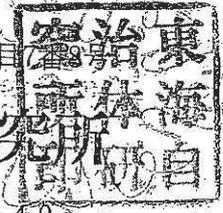 東海自
治体研
究所印
究所